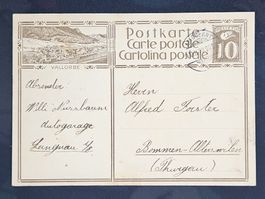 Postkarte
Carte postale
Cartolina postale
10
VALLORBE
Absender
Willi Nussbaum
Autogarage
Herrn
Alfred Forster
Bommen-Alterswilen
(Thurgau)